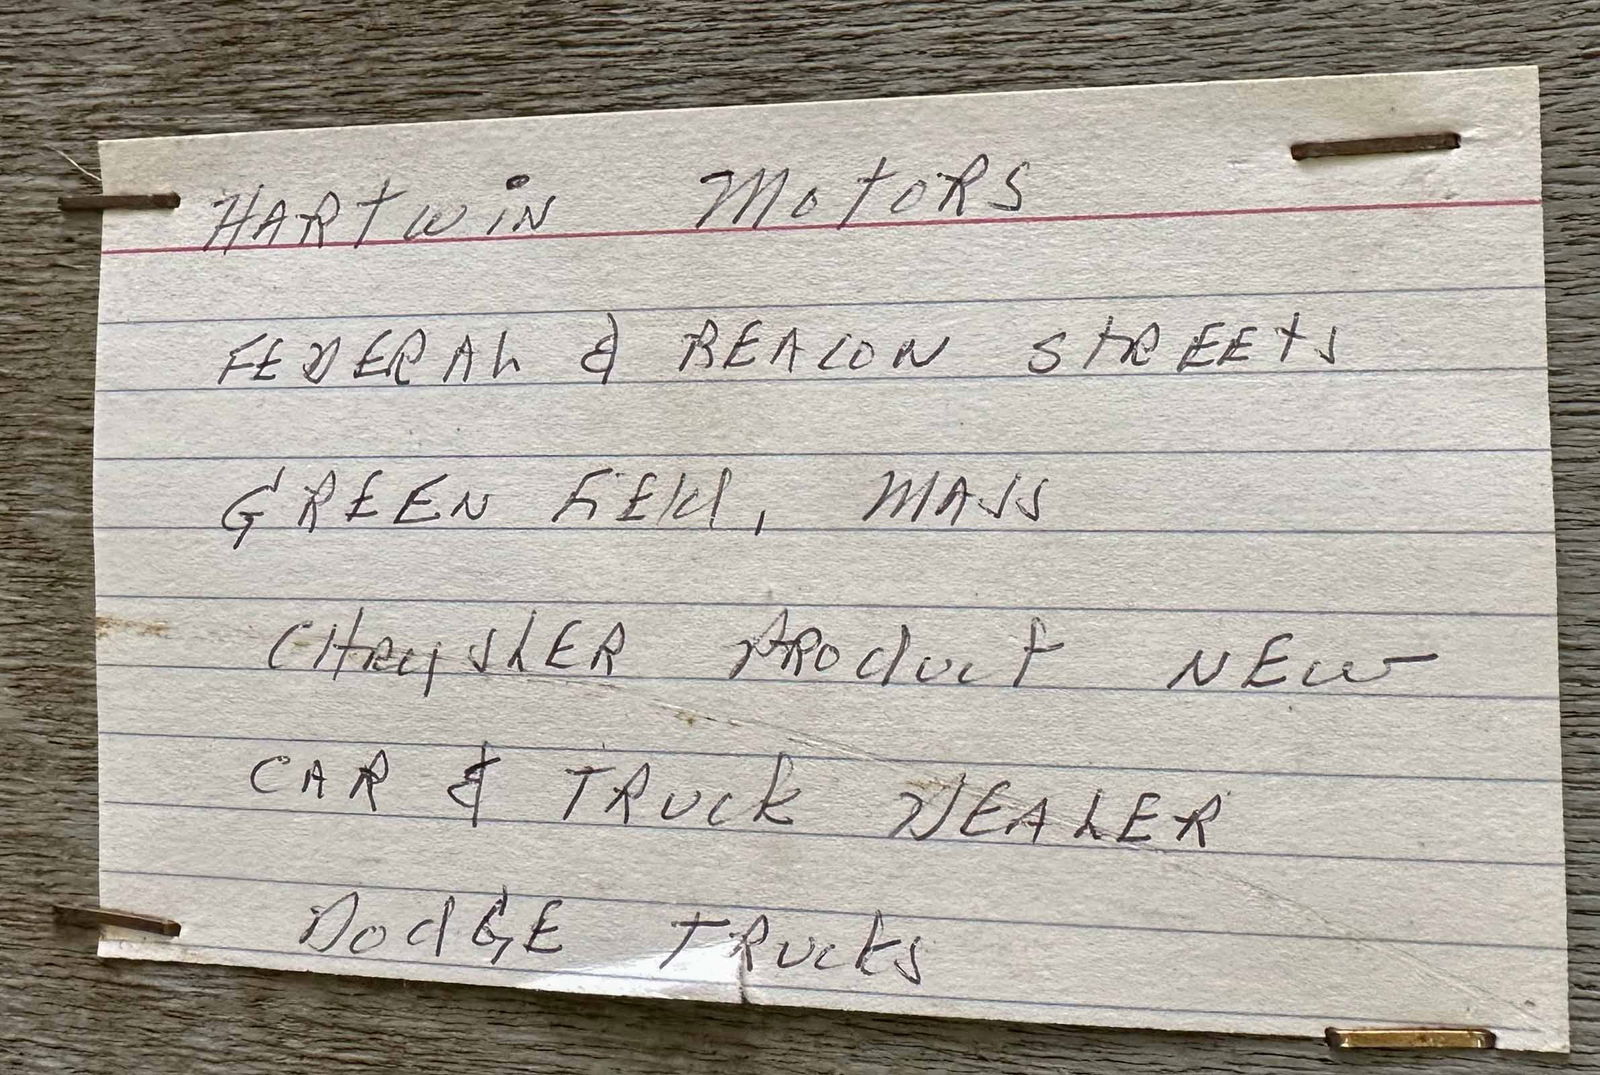 HARTWIN MOTORS
FEDERAL & BEACON STREETS
GREEN FiELd, MASS
CHRySLER PROduct NEW
CAR & TRUCK DEALER
DodGE TRUCKS